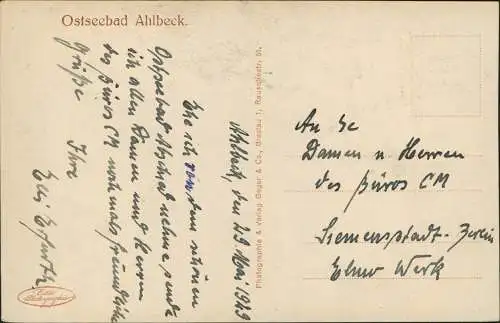 Ostseebad Ahlbeck.
Ahlbeck, den 29 Mai 1929
Ehe ich von dem schönen
Ostseebad Abschied nehme, sende
ich allen Damen und Herren
des Büros CM nochmals freundliche
Grüße
Ihre
Elli Erfurth
Photographie & Verlag Geger & Co., Breslau 1, Reuschestr. 51.
An die
Damen u. Herren
des Büros CM
Siemensstadt-Berlin
Elmo Werk